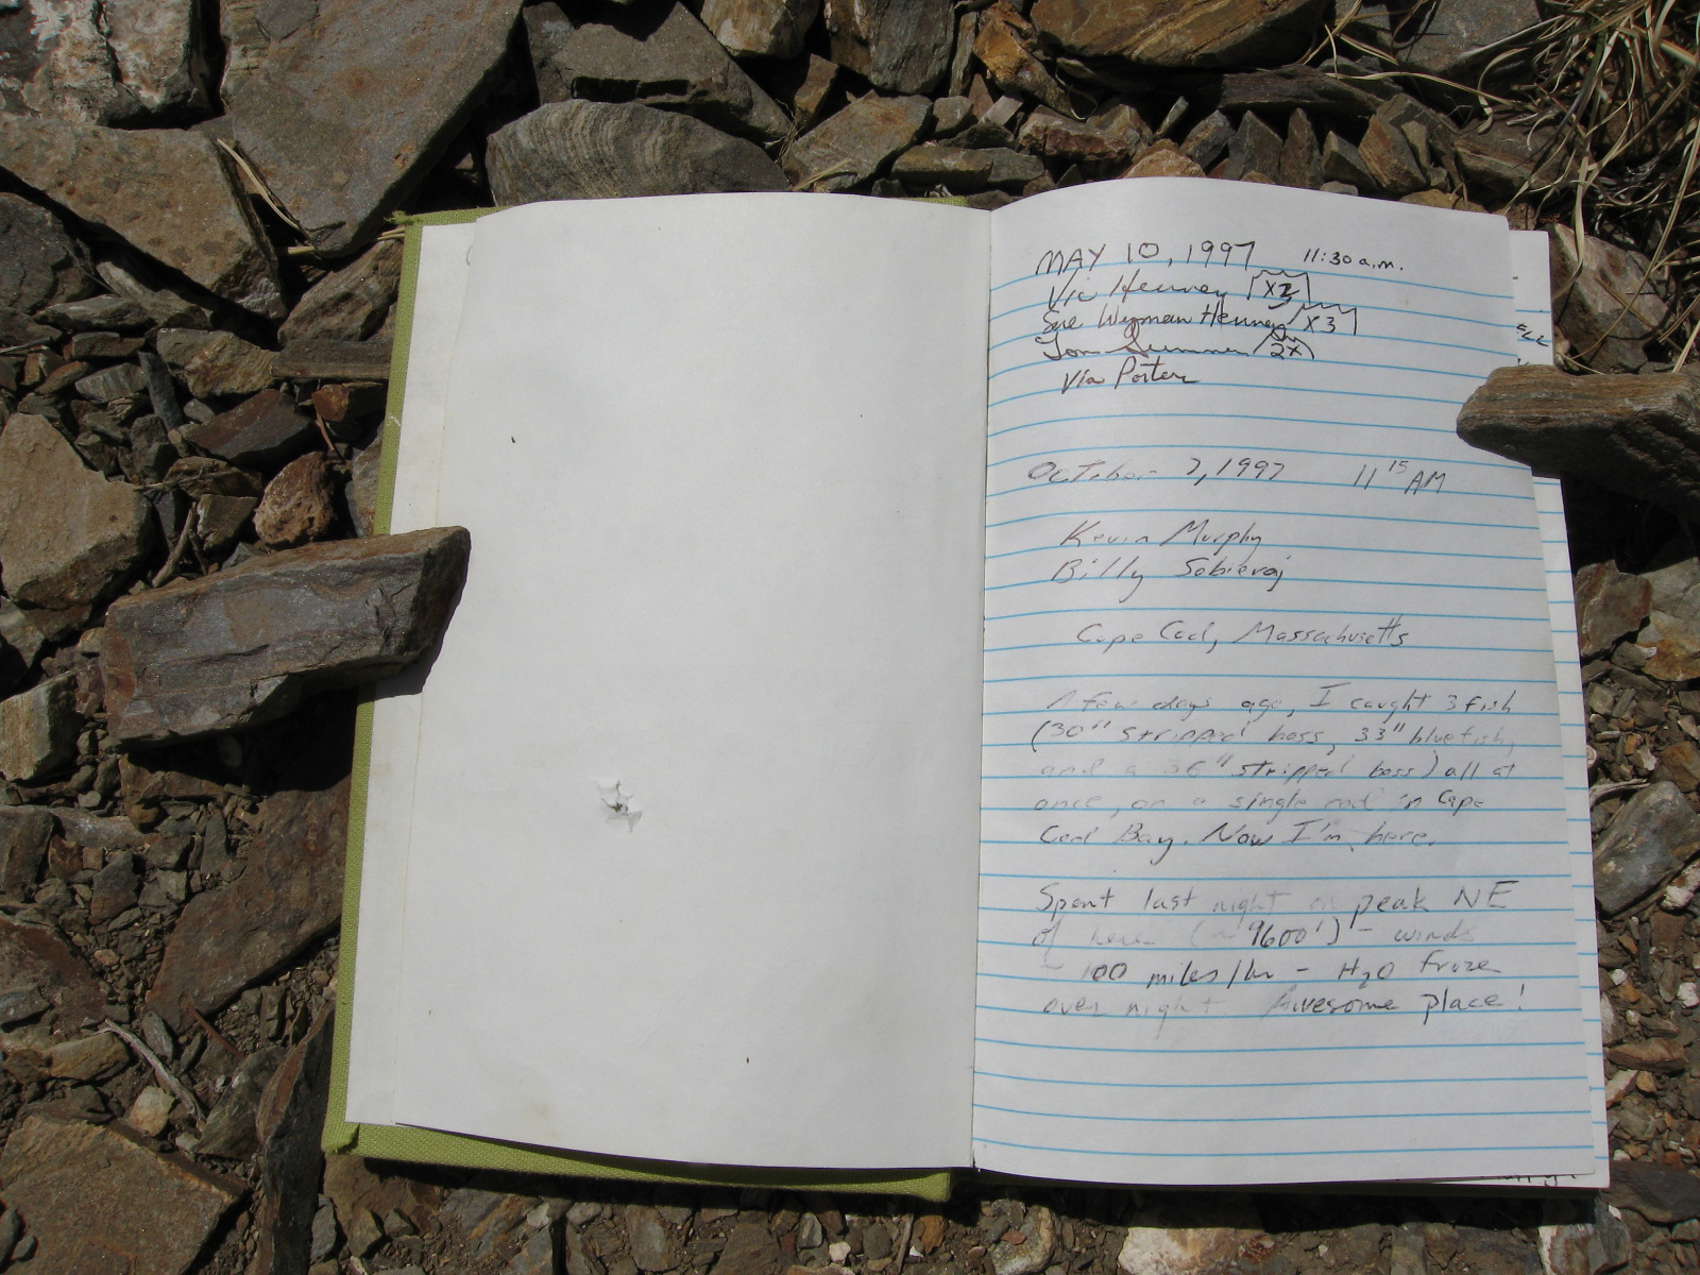 MAY 10, 1997 11:30 a.m.
Vic Henney X2
Sue Wyman Henney X3
Tom Sumner 2X
Via Porter
October 7, 1997 11 15 AM
Kevin Murphy
Billy Sobieraj
Cape Cod, Massachusetts
A few days ago, I caught 3 fish
(30" stripped bass, 33" bluefish,
and a 36" stripped bass) all at
once, on a single rod in Cape
Cod Bay. Now I'm here.
Spent last night on peak NE
of here (~ 9600') - winds
~ 100 miles/hr - H2O froze
over night. Awesome place!